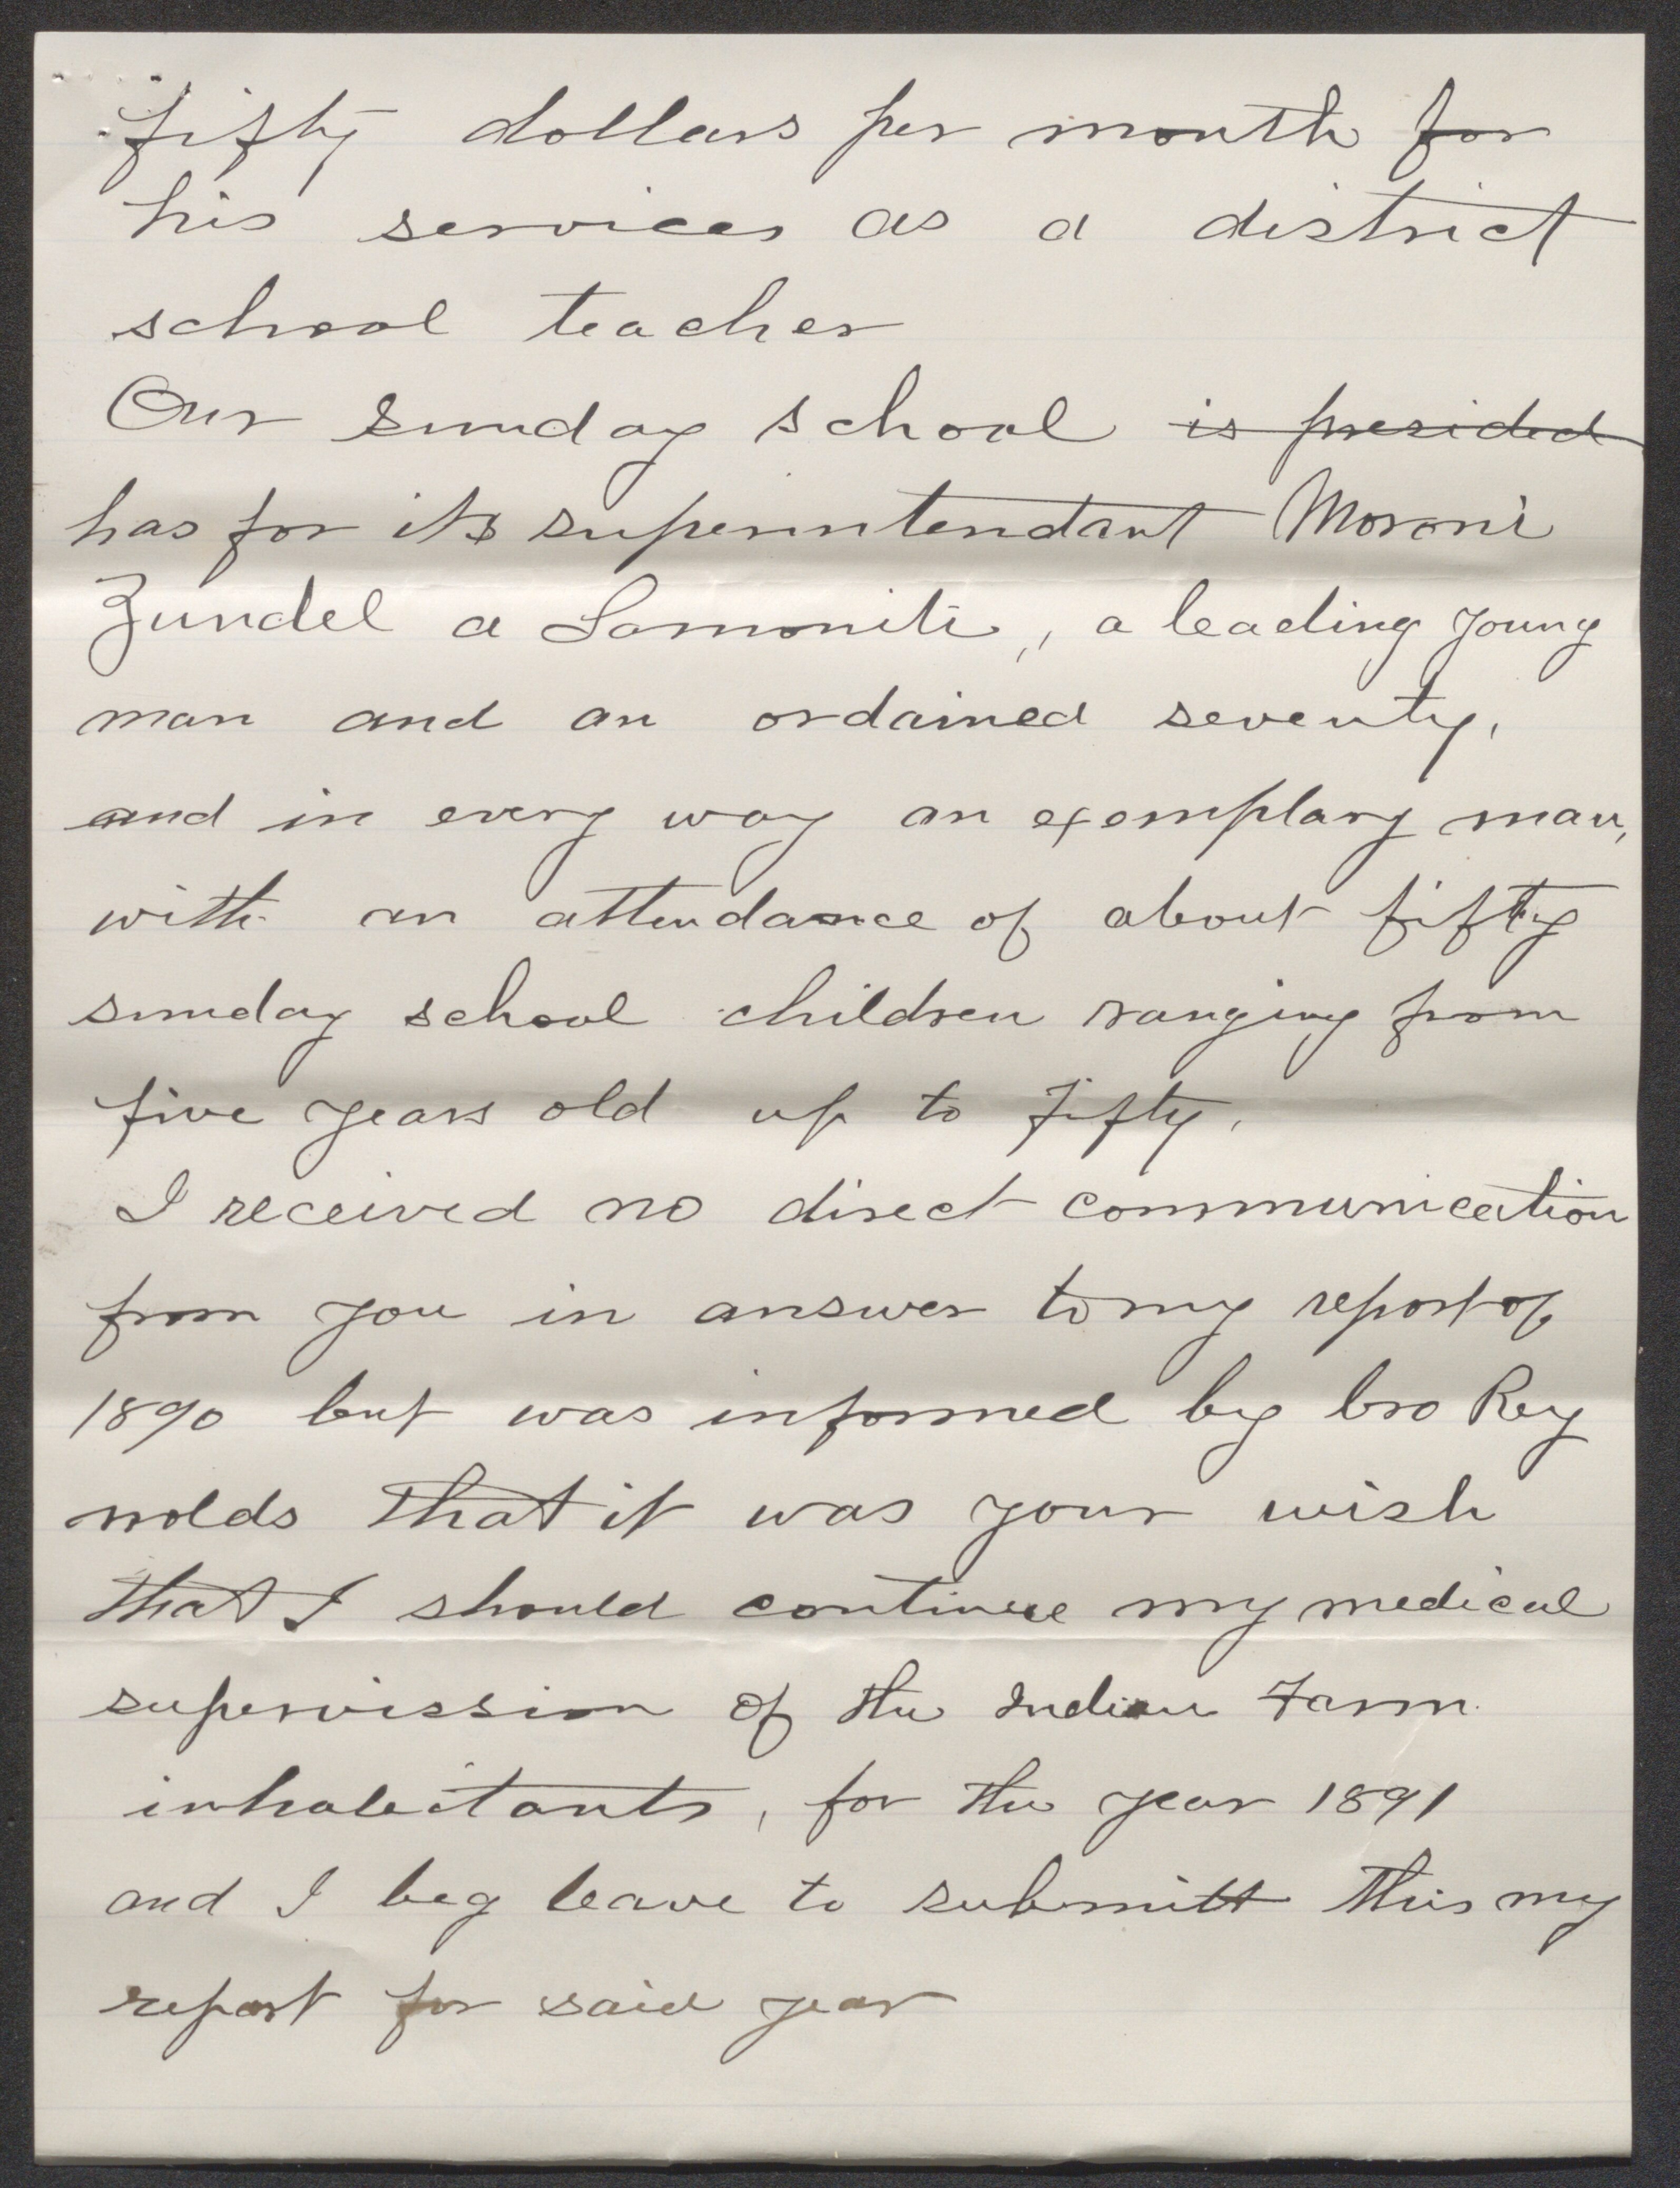 fifty dollars per month for
his services as a district
school teacher
Our sunday school ~~is presided~~
has for its superintendant Moroni
Zundel a Lamonite, a leading young
man and an ordained seventy,
and in every way an exemplary man,
with an attendance of about fifty
sunday school children ranging from
five years old up to fifty.
I received no direct communication
from you in answer to my report of
1890 but was informed by bro Rey
nolds that it was your wish
that I should continue my medical
supervission of the Indian Farm
inhabitants, for the year 1891
and I beg leave to submitt this my
report for said year